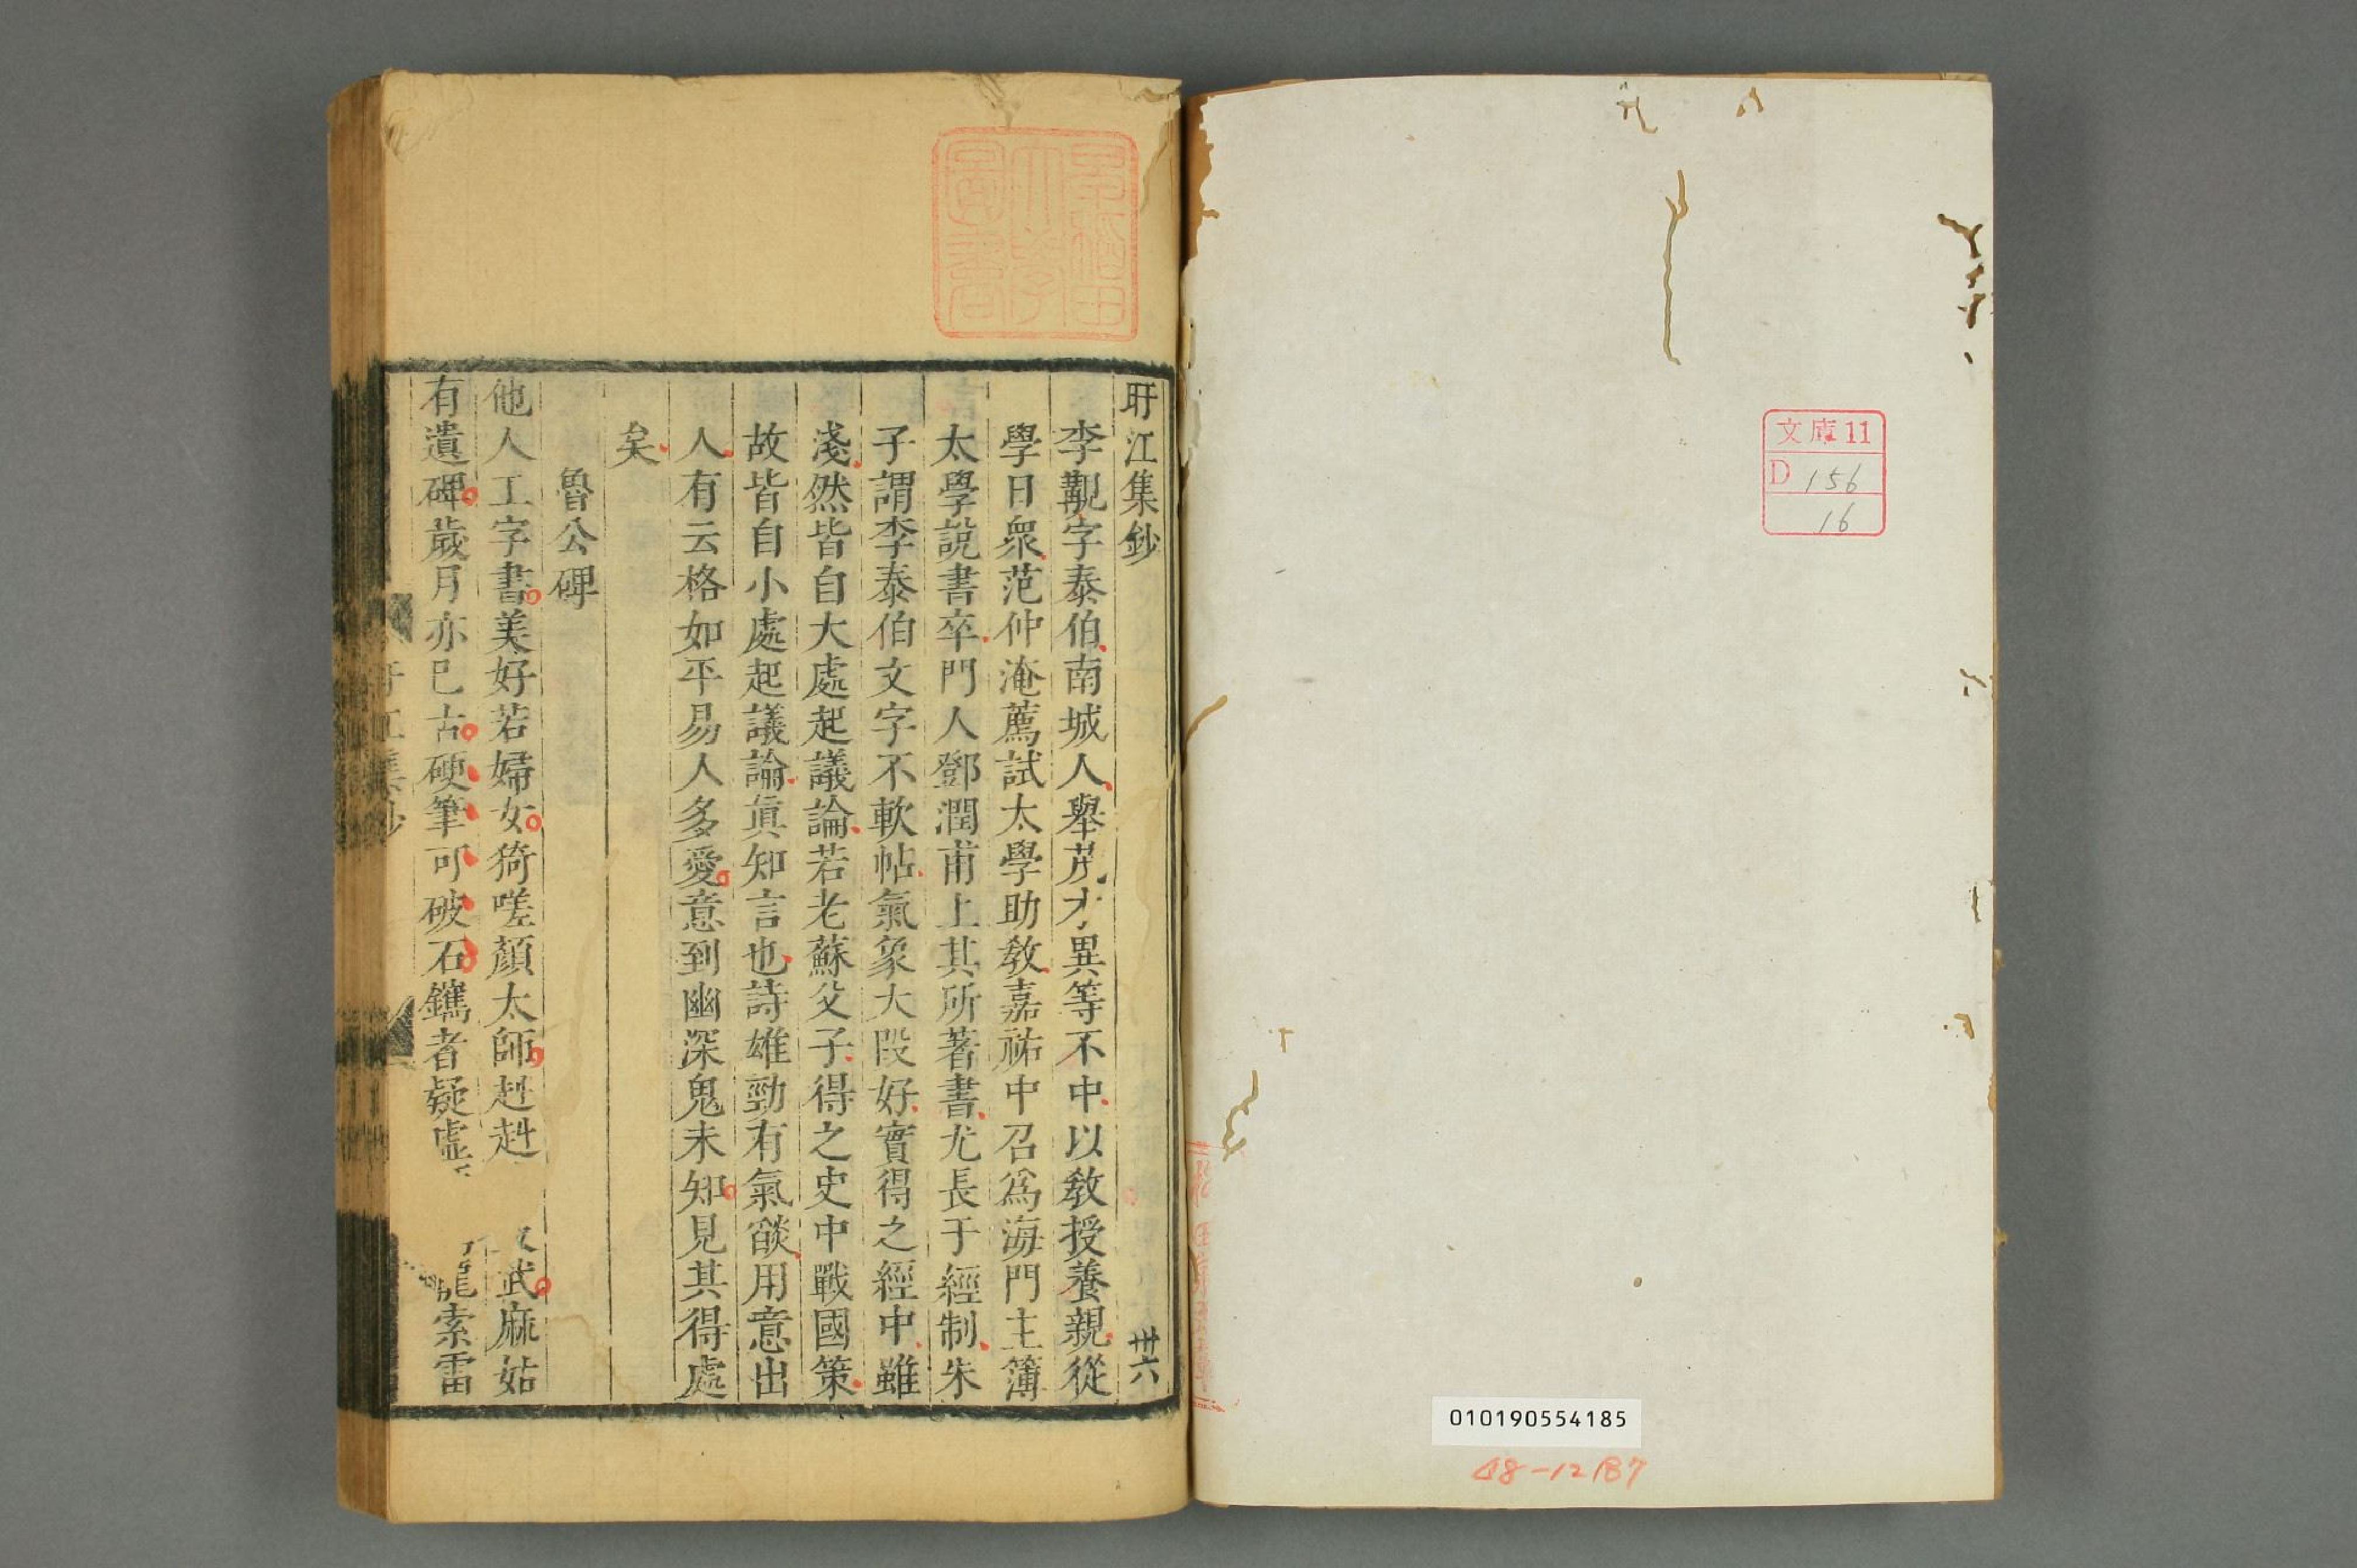 文庫11
D 156
16
010190554185
48-12187
盱江集鈔 卅六
李覯字泰伯南城人舉茂才異等不中以敎授養親從
學日衆范仲淹薦試太學助敎嘉祐中召爲海門主簿
太學說書卒門人鄧潤甫上其所著書尤長于經制朱
子謂李泰伯文字不軟帖氣象大段好實得之經中雖
淺然皆自大處起議論若老蘇父子得之史中戰國策
故皆自小處起議論眞知言也詩雄勁有氣燄用意出
人有云格如平易人多愛意到幽深鬼未知見其得處
矣
魯公碑
他人工字書美好若婦女猗嗟顏太師赳赳 武麻姑
有遺碑歲月亦已古硬筆可破石鐫者疑虛 龍索雷